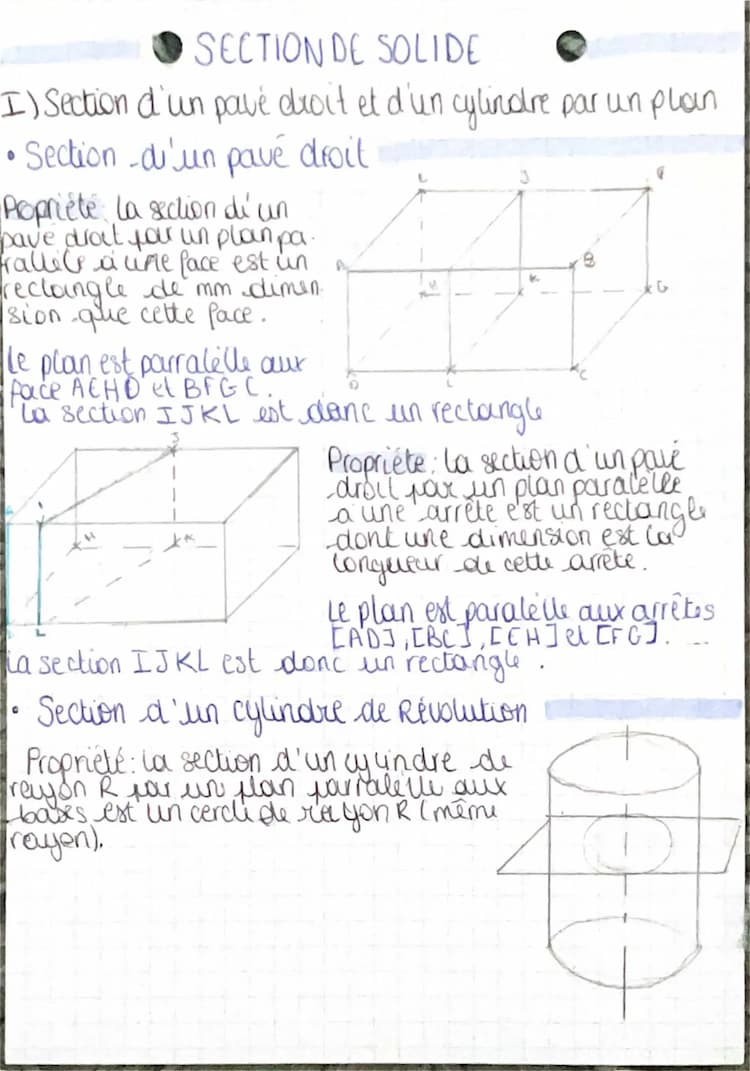 SECTION DE SOLIDE
I) Section d'un pavé droit et d'un cylindre par un plan
• Section d'un pavé droit
Propriété: la section d'un
pavé droit par un plan pa-
rallèle à une face est un
rectangle de mm dimen
sion que cette face.
le plan est parralèlle aux
face AEHD et BFGC.
la section IJKL est donc un rectangle
J
A
B
H
K
G
D
L
C
Propriéte: la section d'un pavé
droit par un plan paralèlle
à une arrête est un rectangle
dont une dimension est la
longueur de cette arrête.
J
H
K
L
Le plan est paralèlle aux arrêtes
[AD], [BC], [EH] et [FG].
la section IJKL est donc un rectangle.
• Section d'un cylindre de Révolution
Propriété: la section d'un cylindre de
rayon R par un plan parralèlle aux
bases est un cercle de rayon R (même
rayon).